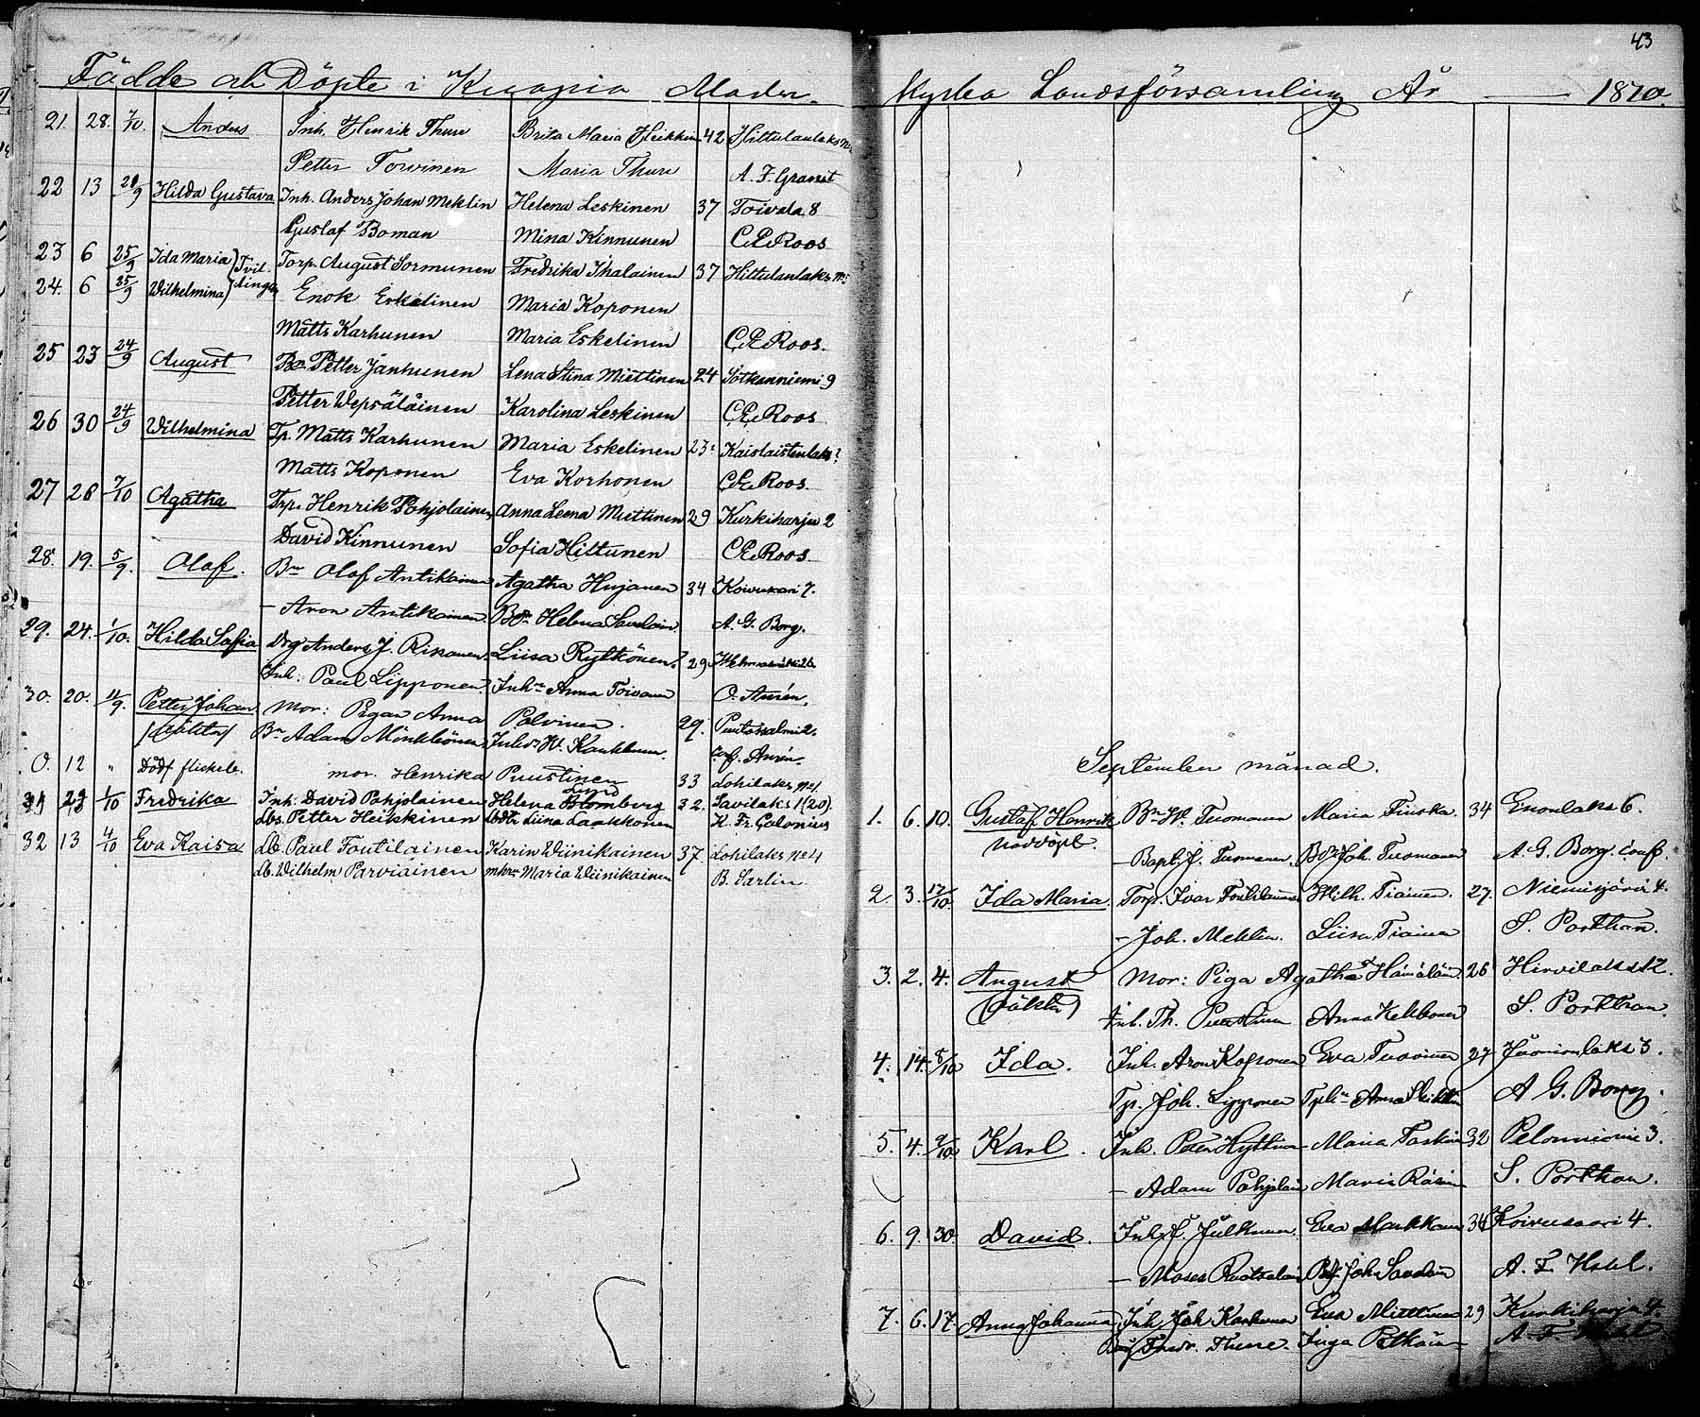 Födde och Döpte i Kuopio Moder
21. 28. 7/10. Anders Inh. Henrik Thure Brita Maria Heikkinen 42 Hiltulanlaks
Petter Torvinen Maria Thure A. F. Granit
22 13 20/9 Hilda Gustava Inh. Anders Johan Meklin Helena Leskinen 37 Toivala 8
Gustaf Boman Mina Kinnunen C. E. Roos
23 6 25/9 Ida Maria Tvil- Torp. August Sormunen Fredrika Ihalainen 37 Hiltulanlaks
24. 6 25/9 Wilhelmina lingar Enok Eskelinen Maria Koponen
Matts Karhunen Maria Eskelinen C. E. Roos.
25 23 24/9 August Petter Janhunen Lena Stina Miettinen 24 Sotkanniemi 9
Petter Wepsäläinen Karolina Leskinen C. E. Roos
26 30 24/9 Wilhelmina Tp. Matts Karhunen Maria Eskelinen 23 Kaislastenlaks
Matts Koponen Eva Korhonen C. E. Roos.
27 28 7/10 Agatha Trp. Henrik Pohjolainen Anna Leena Miettinen 29 Kurkiharju 2
David Kinnunen Sofia Hiltunen C. E. Roos
28. 19. 5/9. Olof. Bn Olof Antikainen Agatha Hujanen 34 Koivusari 7.
– Aron Antikainen Helena A. G. Borg.
29. 24. 1/10. Hilda Sofia Drg Anders J. Rikonen Liisa Rytkönen 29
Inh: Paul Lipponen Inhn Anna Toivanen O. Aurén.
30. 20. 4/9. Petter Johan Mor: Pigan Anna Polvinen. 29.
/oäkta/ Bn Adam Mönkkönen Aurén.
0. 12 " Dödf flickeb. mor. Henrika Puustinen 33 Lohilaks No 4.
Lund
31 23 1/10 Fredrika Inh: David Pohjolainen Helena Blomberg 32. Savilaks 1 (20).
Petter Heikkinen Liina Laakkonen K. Fr. Calonius
32 13 4/10 Eva Kaisa Paul Toutilainen Karin Wiinikainen 37 Lohilaks No 4
Wilhelm Parviainen Maria Wiinikainen B. Sarlin.
43
Kyrko Landsförsamling År 1870.
September månad.
1. 6. 10. Gustaf Henrik Bn W. Tuomanen Maria Finska. 34 Enonlaks 6.
nöddöpt. – J. Tuomanen. Joh. Tuomanen A. G. Borg.
2. 3. 12/10. Ida Maria. Torp. Ivar Wilh. Tiainen. 27. Niemisjärvi 4.
– Joh. Meklin. Liisa Tiainen S. Porthan.
3. 2. 4. August Mor: Piga Agatha 26 Hirvilaks 12.
(oäkta) Inh. Th. Anna Kekkonen S. Porthan.
4. 14. 8/10 Ida. Inh. Aron Koponen Eva Tuovinen 27 3.
Tp. Joh. Lipponen Tphu Anna A. G. Borg.
5. 4. 9/10 Karl. Inh. Peter Hyttinen Maria Taskinen 32 Pelonniemi 3.
– Adam Pohjolain Maria Räsän S. Porthan.
6. 9. 30. David. Inh. Julkunen Eva Markkanen 34 Koivusaari 4.
– Moses Joh. A. F.
7. 6. 17. Anna Johanna Inh Joh Karhunen Eva Miettinen 29 Kurkiharju 4.
Thure. Inga A. F.